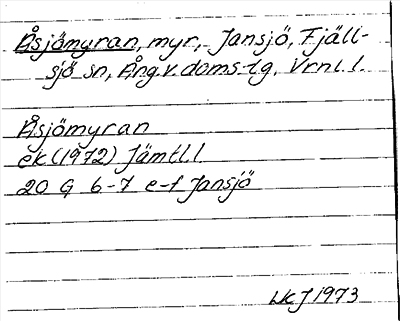 Åsjömyran, myr, Jansjö, Fjäll-
sjö sn, Ång.v. doms-lg, Vrnl. l.
Åsjömyran
ek (1972) Jämtl. l
20 G 6-7 e-f Jansjö
WKJ 1973